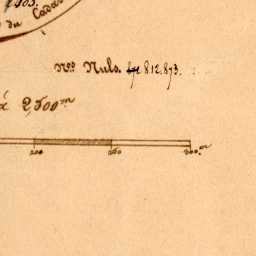 du Cadas
Nos Nuls. 812.873.
à 2,500m
200 250 300m